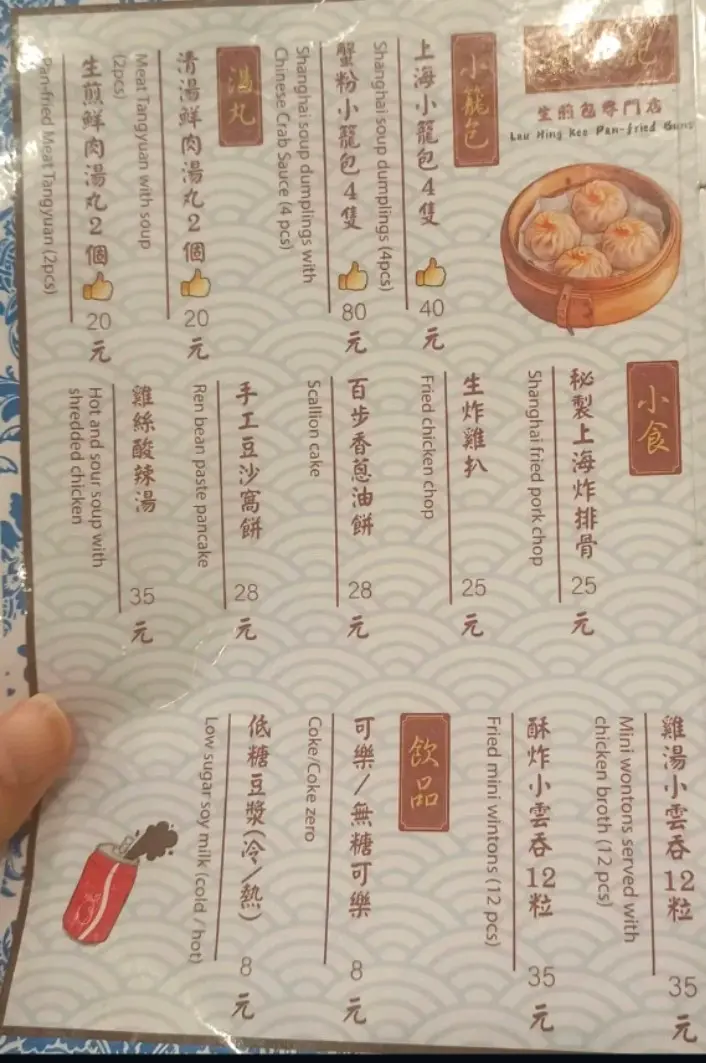 生煎包專門店
Lau Hing Kee Pan-fried Buns
小籠包
上海小籠包4隻
40元
Shanghai soup dumplings (4pcs)
蟹粉小籠包4隻
80元
Shanghai soup dumplings with
Chinese Crab Sauce (4 pcs)
湯丸
清湯鮮肉湯丸2個
20元
Meat Tangyuan with soup
(2pcs)
生煎鮮肉湯丸2個
20元
Pan-fried Meat Tangyuan (2pcs)
小食
秘製上海炸排骨
25元
Shanghai fried pork chop
生炸雞扒
25元
Fried chicken chop
百步香蔥油餅
28元
Scallion cake
手工豆沙窩餅
28元
Ren bean paste pancake
雞絲酸辣湯
35元
Hot and sour soup with
shredded chicken
雞湯小雲吞12粒
35元
Mini wontons served with
chicken broth (12 pcs)
酥炸小雲吞12粒
35元
Fried mini wintons (12 pcs)
飲品
可樂/無糖可樂
8元
Coke/Coke zero
低糖豆漿(冷/熱)
8元
Low sugar soy milk (cold / hot)